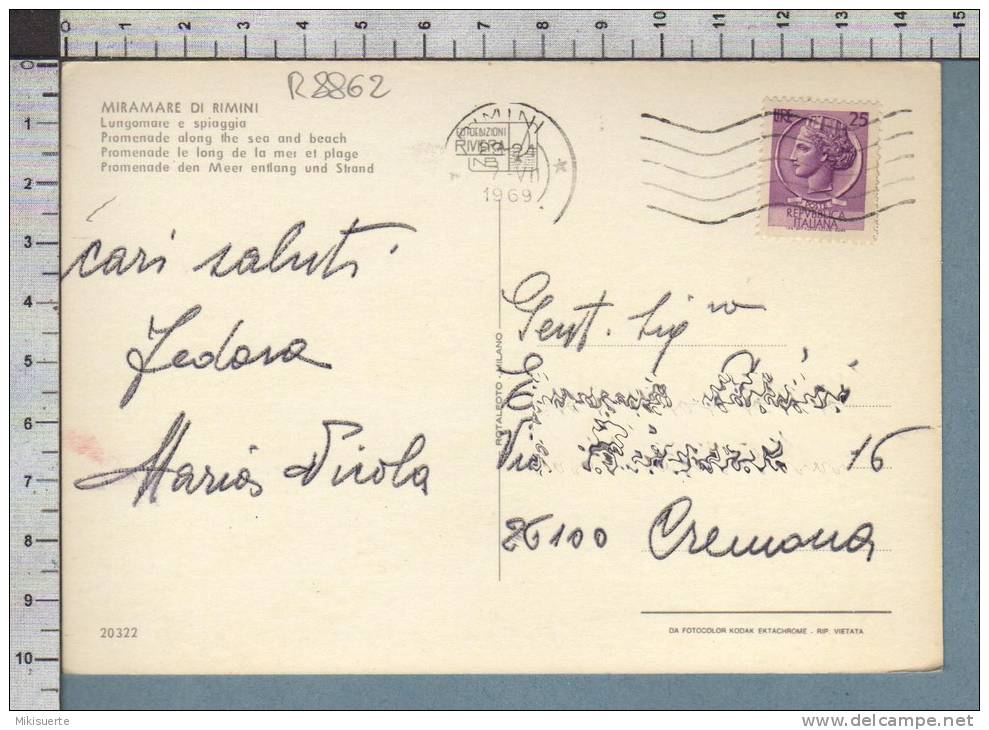 R8862
MIRAMARE DI RIMINI
Lungomare e spiaggia
Promenade along the sea and beach
Promenade le long de la mer et plage
Promenade den Meer entlang und Strand
RIMINI
FOTOEDIZIONI
RIVIERA
7-VII
1969
LIRE 25
POSTE
REPVBBLICA
ITALIANA
cari saluti
Fedora
Mario Pirola
Gent. Sig
Via 16
26100 Cremona
ROTALFOTO - MILANO
20322
DA FOTOCOLOR KODAK EKTACHROME - RIP. VIETATA
0 1 2 3 4 5 6 7 8 9 10 11 12 13 14 15
0
1
2
3
4
5
6
7
8
9
10
Mikisuerte
www.delcampe.net